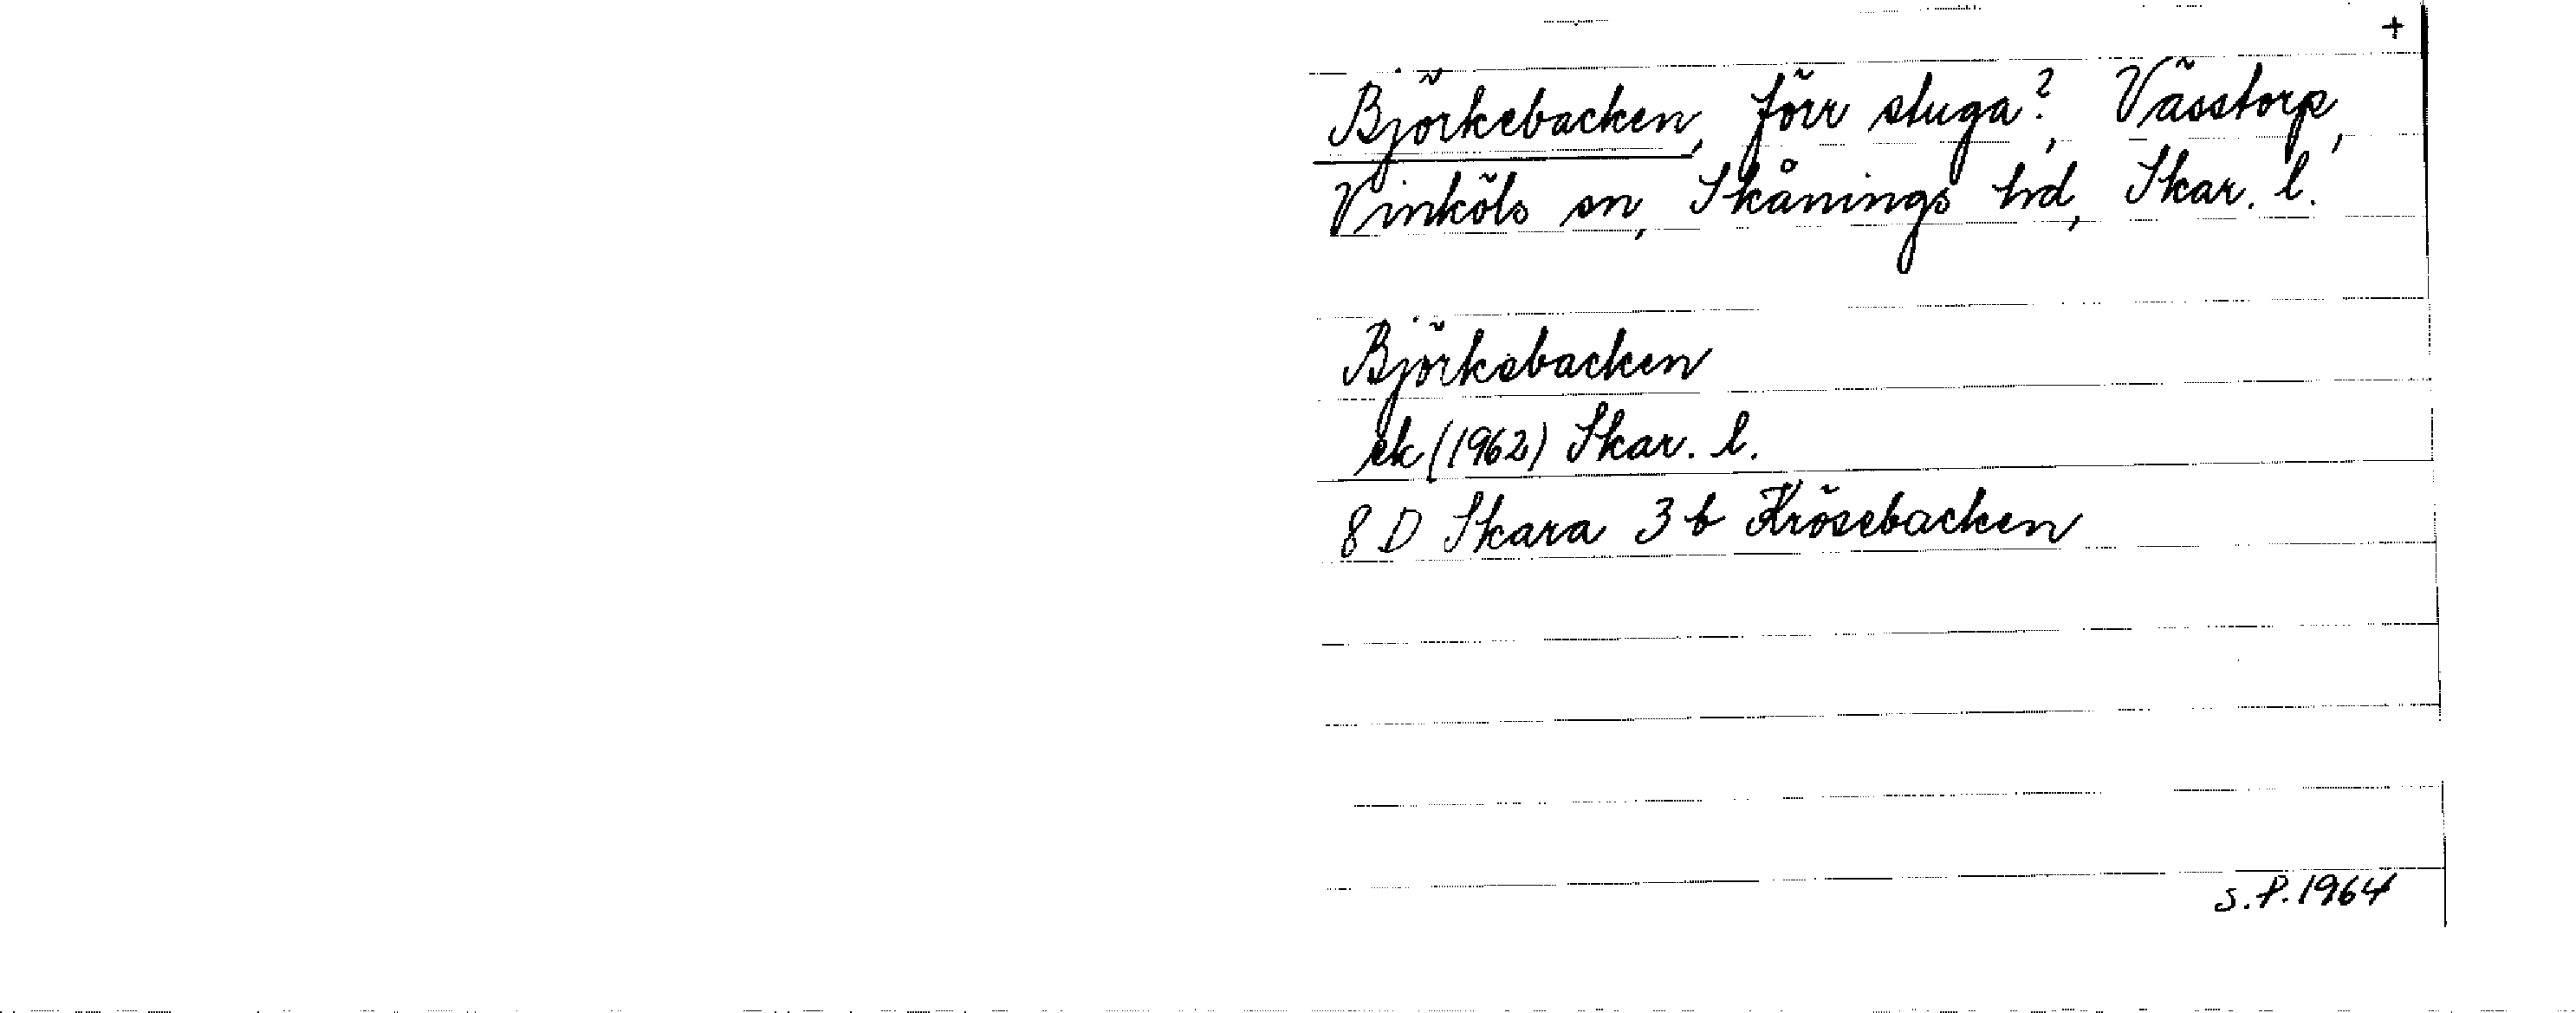 +
Björkebacken, förr stuga?, Vässtorp,
Vinköls sn, Skånings hd, Skar. l.
Björkebacken
ek (1962) Skar. l.
8 D Skara 3 b Krösebacken
S.P. 1964